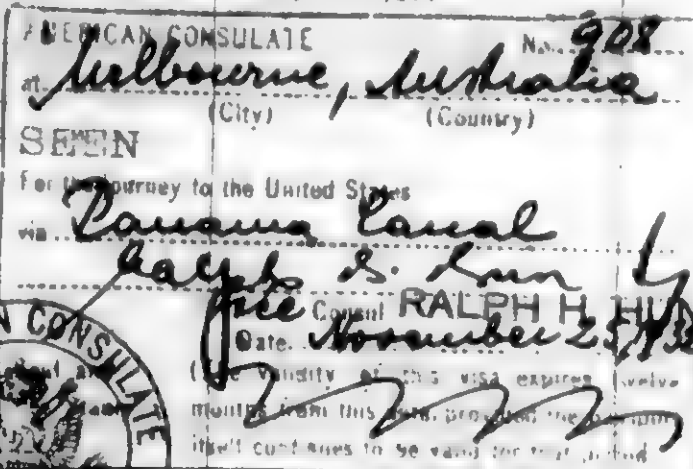 AMERICAN CONSULATE No. 908
at Melbourne, Australia
(City) (Country)
SEEN
For the journey to the United States
via Panama Canal
Ralph H.
Vice Consul RALPH H. HUN
Date November 25/
N CONSULATE
validity of this visa expires twelve
months from this date, provided the
itself continues to be valid for that period